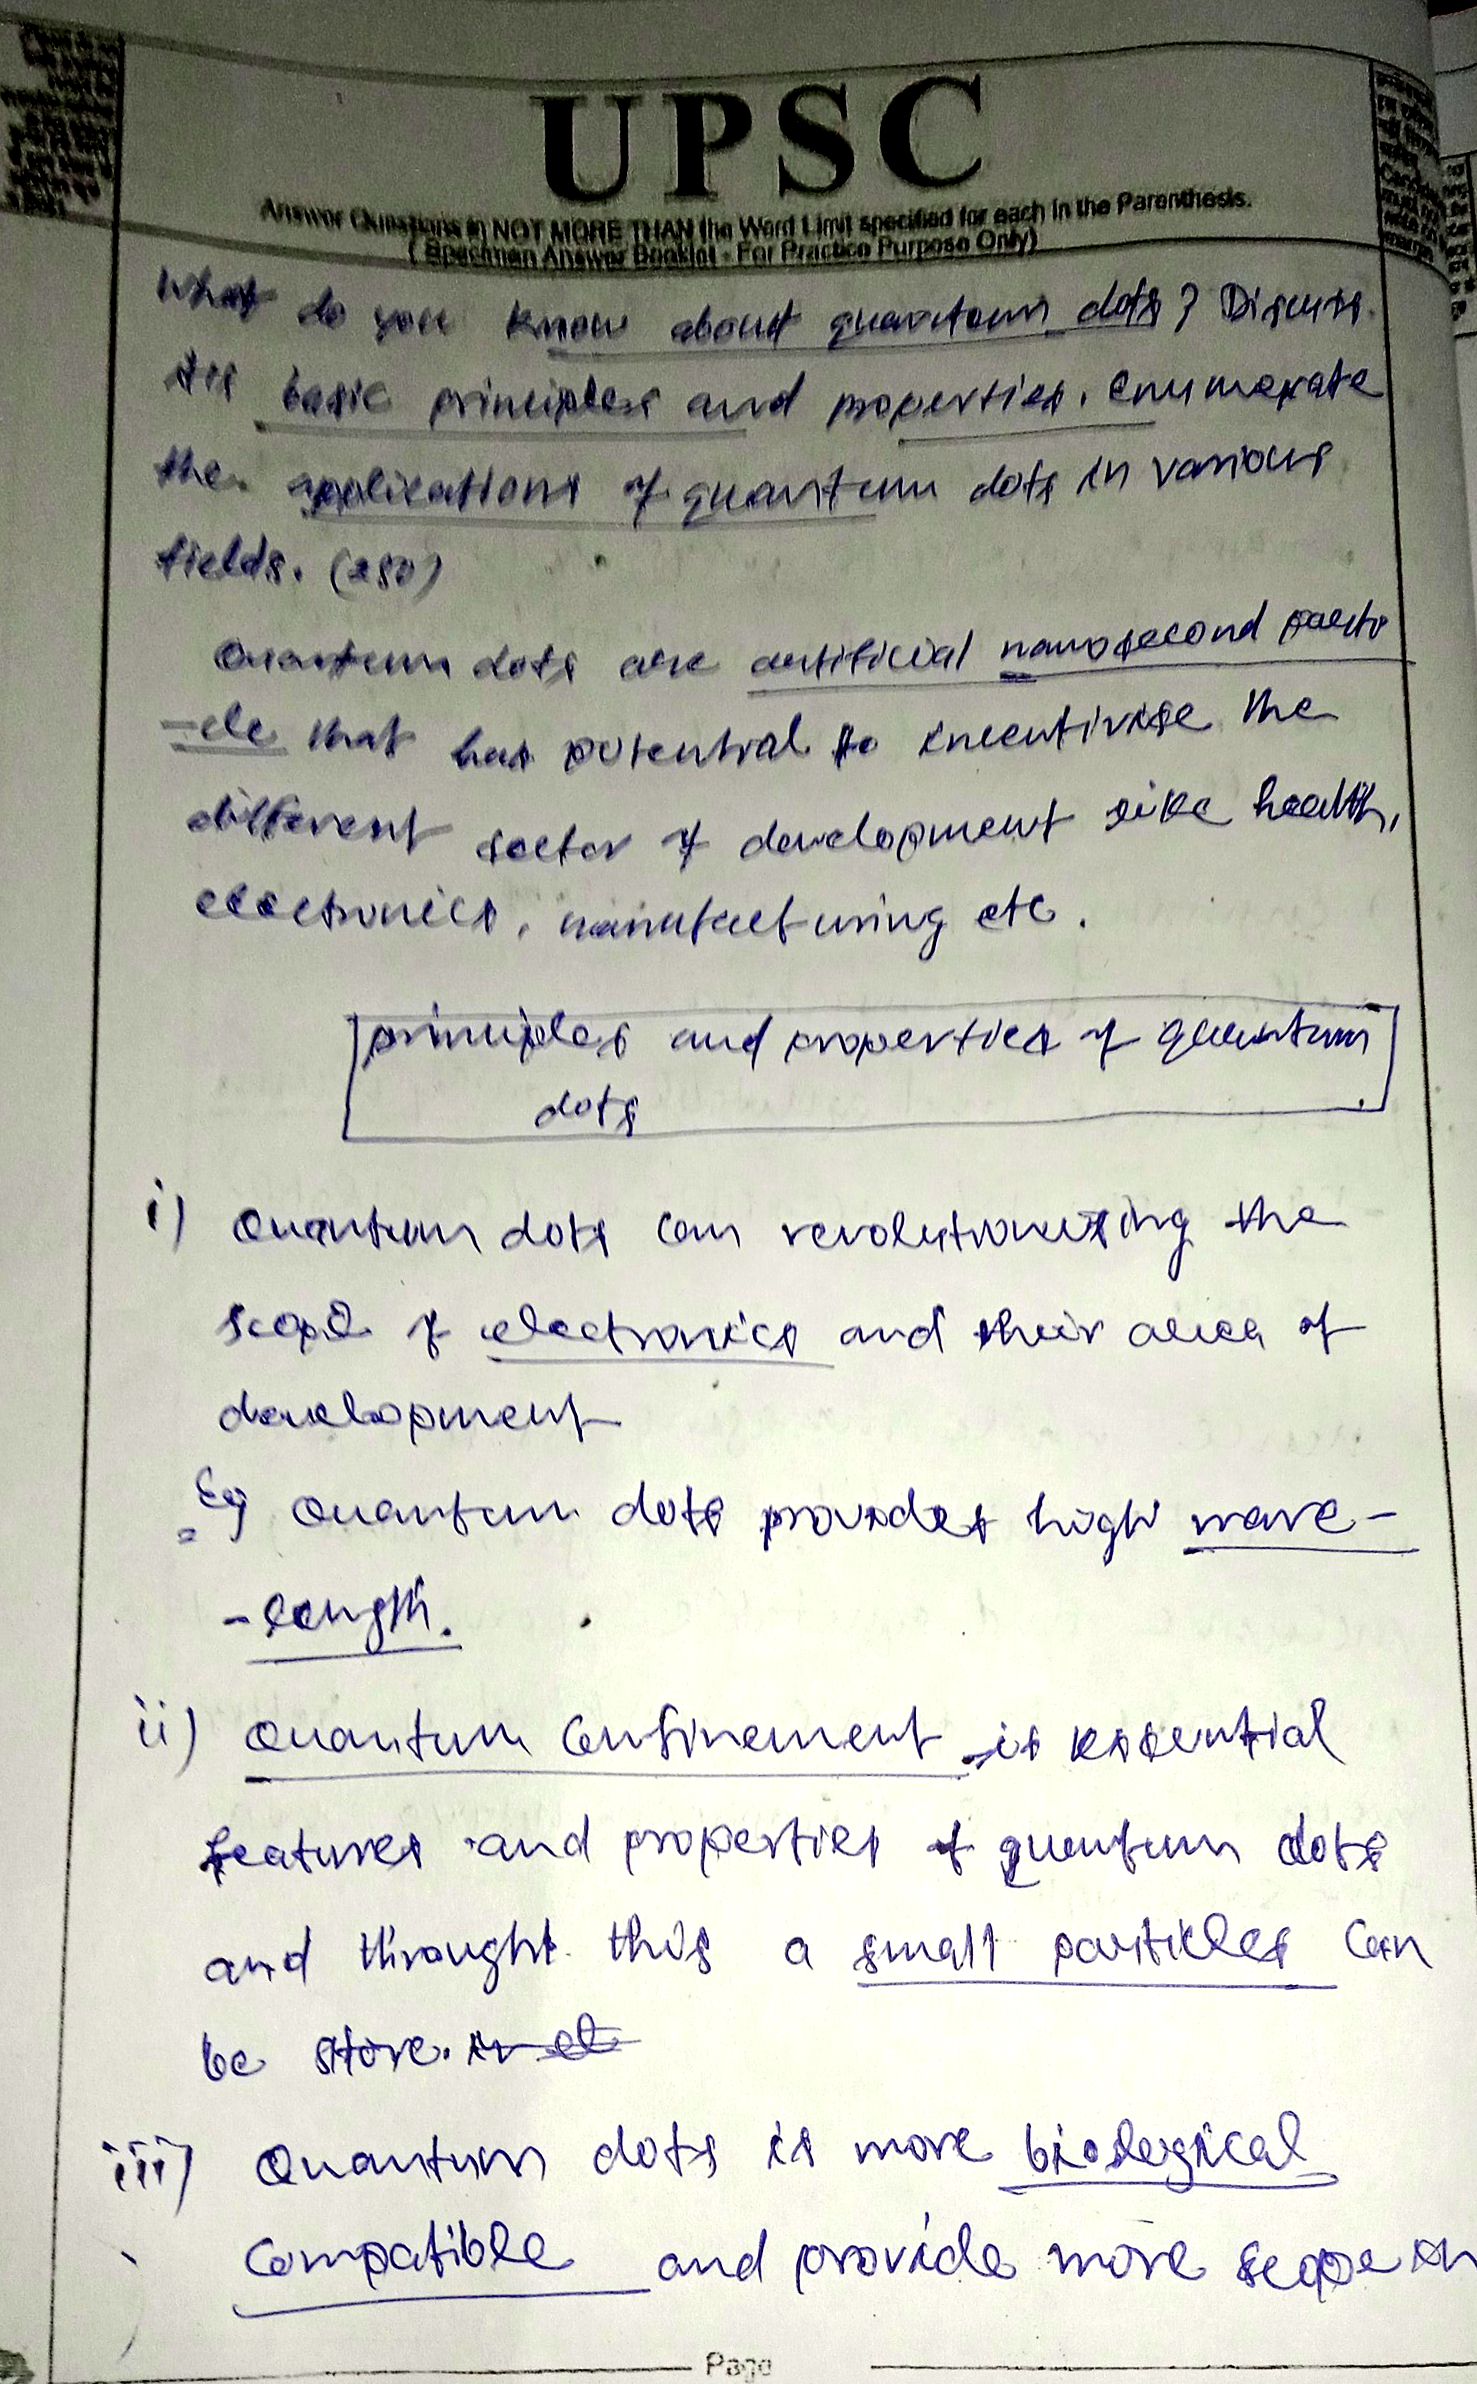 UPSC
Answer Questions in NOT MORE THAN the Word Limit specified for each in the Parenthesis.
( Specimen Answer Booklet - For Practice Purpose Only)
What do you know about quantum dots? Discuss
its basic principles and properties. Enumerate
the applications of quantum dots in various
fields. (250)
Quantum dots are artificial nanosecond parti
-cle that has potential to incentivise the
different sector of development like health,
electronics, manufacturing etc.
principles and properties of quantum
dots
i) Quantum dots can revolutionising the
scope of electronics and their area of
development
Eg Quantum dots provides high wave-
-length.
ii) Quantum Confinement is essential
features and properties of quantum dots
and throught this a small particles can
be store.
iii) Quantum dots is more biological
Compatible and provide more scope in
Page